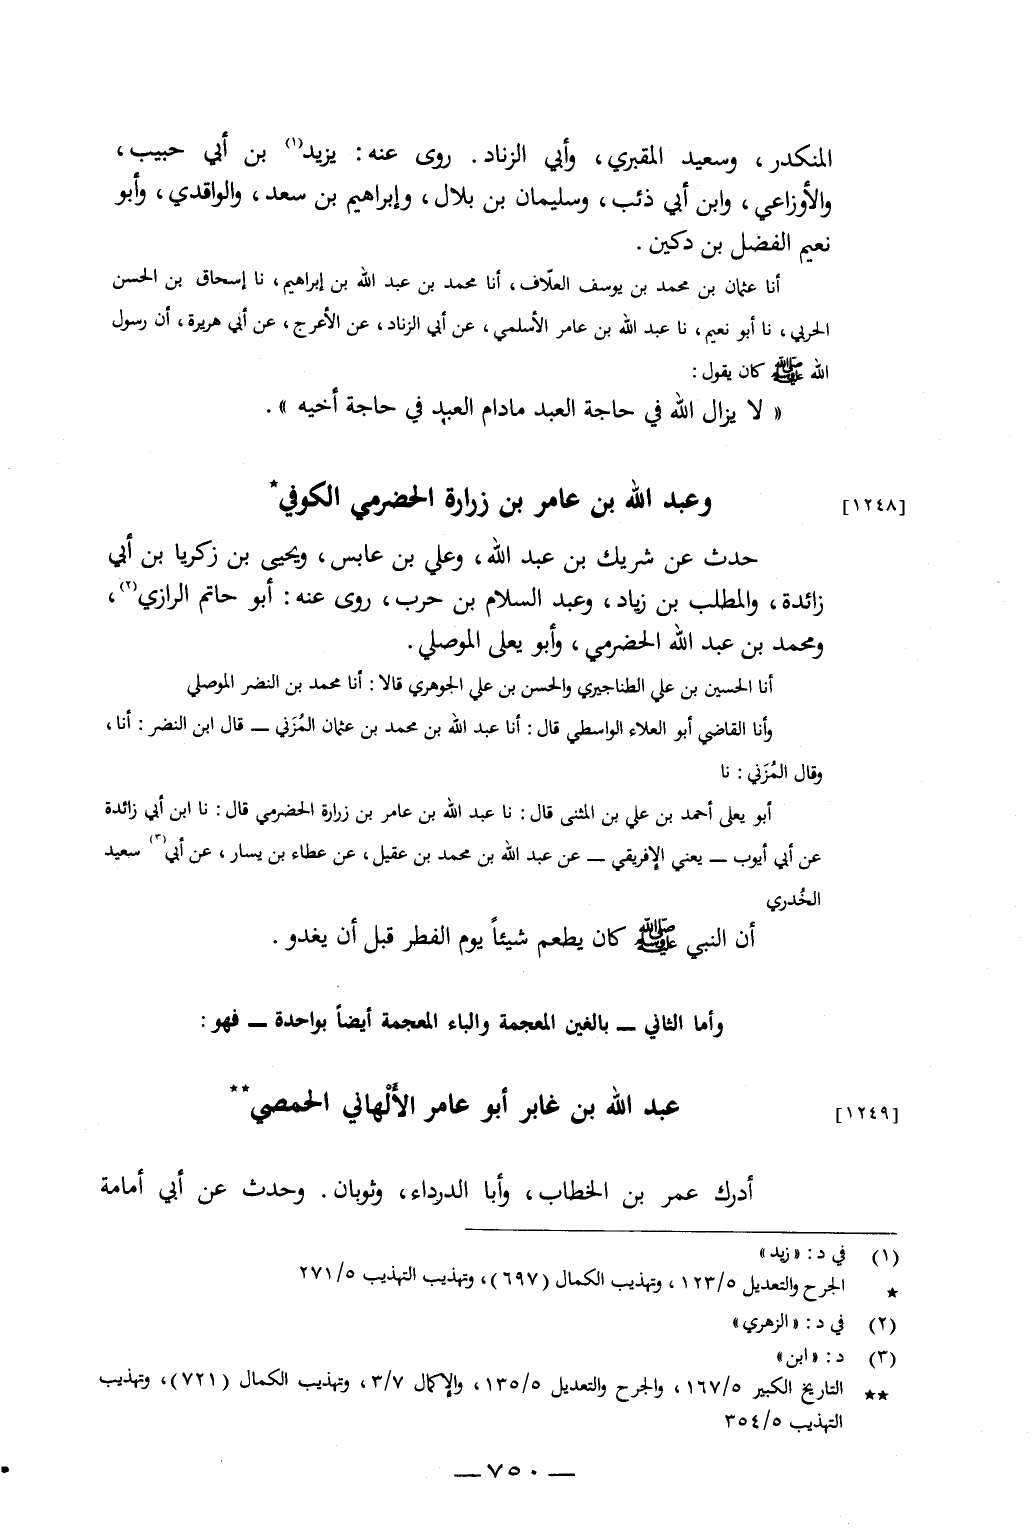 المنكدر، وسعيد المقبري، وأبي الزناد. روى عنه: يزيد(١) بن أبي حبيب،
والأوزاعي، وابن أبي ذئب، وسليمان بن بلال، وإبراهيم بن سعد، والواقدي، وأبو
نعيم الفضل بن دكين.
أنا عثمان بن محمد بن يوسف العلّاف، أنا محمد بن عبد الله بن إبراهيم، نا إسحاق بن الحسن
الحربي، نا أبو نعيم، نا عبد الله بن عامر الأسلمي، عن أبي الزناد، عن الأعرج، عن أبي هريرة، أن رسول
الله ﷺ كان يقول:
« لا يزال الله في حاجة العبد مادام العبد في حاجة أخيه ».
[١٢٤٨] وعبد الله بن عامر بن زرارة الحضرمي الكوفي*
حدث عن شريك بن عبد الله، وعلي بن عابس، ويحيى بن زكريا بن أبي
زائدة، والمطلب بن زياد، وعبد السلام بن حرب، روى عنه: أبو حاتم الرازي(٢)،
ومحمد بن عبد الله الحضرمي، وأبو يعلى الموصلي.
أنا الحسين بن علي الطناجيري والحسن بن علي الجوهري قالا: أنا محمد بن النضر الموصلي
وأنا القاضي أبو العلاء الواسطي قال: أنا عبد الله بن محمد بن عثمان المُزَني ــ قال ابن النضر: أنا،
وقال المُزَني: نا
أبو يعلى أحمد بن علي بن المثنى قال: نا عبد الله بن عامر بن زرارة الحضرمي قال: نا ابن أبي زائدة
عن أبي أيوب ــ يعني الإفريقي ــ عن عبد الله بن محمد بن عقيل، عن عطاء بن يسار، عن أبي(٣) سعيد
الخُدري
أن النبي ﷺ كان يطعم شيئاً يوم الفطر قبل أن يغدو.
وأما الثاني ــ بالغين المعجمة والباء المعجمة أيضاً بواحدة ــ فهو:
[١٢٤٩] عبد الله بن غابر أبو عامر الأَلْهاني الحمصي**
أدرك عمر بن الخطاب، وأبا الدرداء، وثوبان. وحدث عن أبي أمامة
(١) في د: «زيد»
* الجرح والتعديل ١٢٣/٥، وتهذيب الكمال (٦٩٧)، وتهذيب التهذيب ٢٧١/٥
(٢) في د: «الزهري»
(٣) د: «ابن»
** التاريخ الكبير ١٦٧/٥، والجرح والتعديل ١٣٥/٥، والإكمال ٣/٧، وتهذيب الكمال (٧٢١)، وتهذيب
التهذيب ٣٥٤/٥
ــ ٧٥٠ ــ